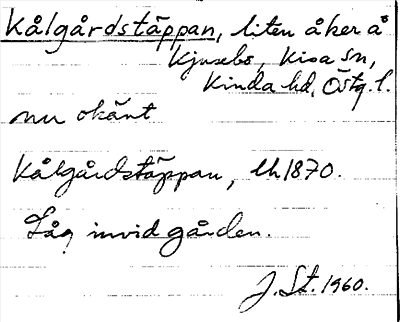 Kålgårdstäppan, liten åker å
Kjusebo, Kisa sn,
Kinda hd, Östg. l.
nu okänt
Kålgårdstäppan, lh 1870.
Låg invid gården.
J. St. 1960.